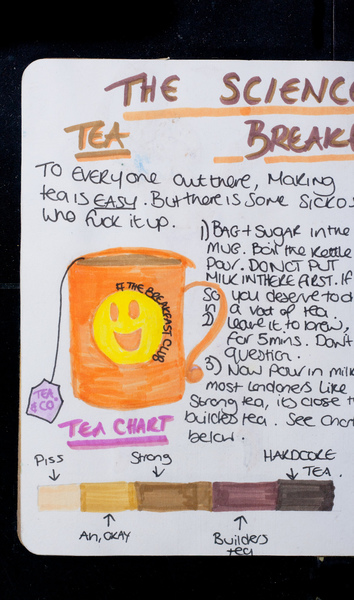 THE SCIENCE
TEA BREAKF
TO EVERYone out there, MAKING
tea is EASY. But there is Some SICKOS
Who fuck it up.
1) BAG + SUGAR in the
MUG. Boil the Kettle
Pour. DO NOT PUT
MILK IN THERE FIRST. If
So you deserve to d
in a vat of tea.
2) Leave it to brew,
for 5mins. Don't
question.
3) Now Pour in milk
most Londoners Like
Strong tea, its close t
builders tea. See Chart
below.
# THE BREAKFAST CLUB
TEA
& CO.
TEA CHART
Piss Strong HARDCORE
TEA.
Ah, OKAY Builders
tea